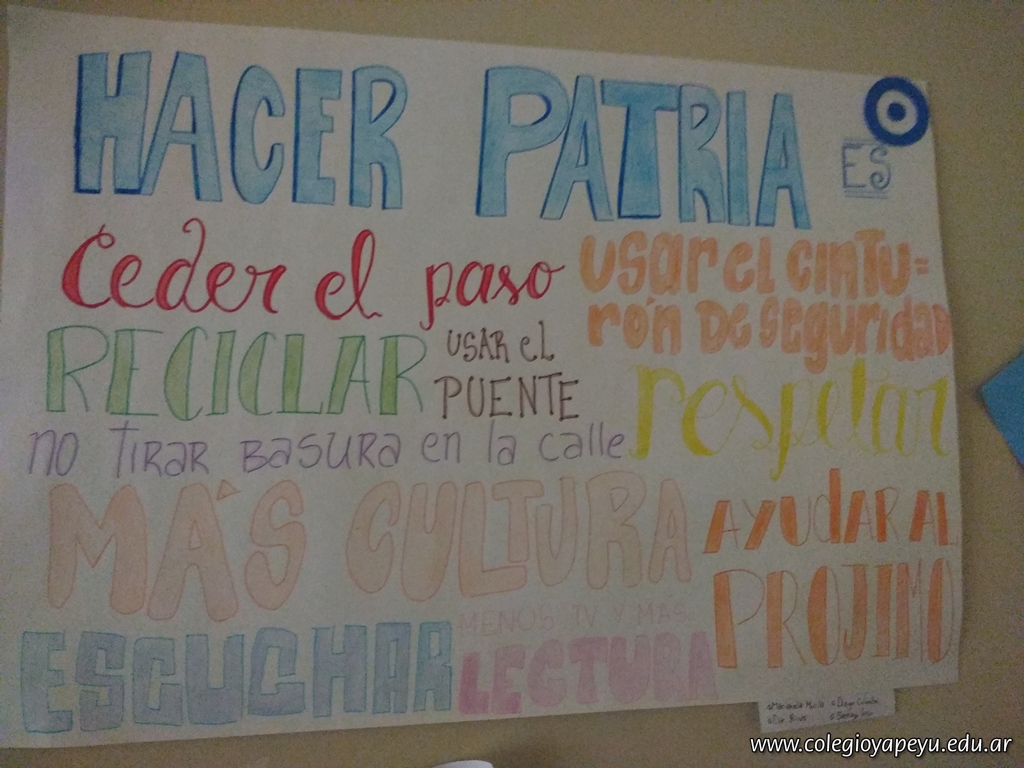 HACER PATRIA
ES
Ceder el paso
USAR EL CINTU=
RÓN DE SEGURIDAD
RECICLAR
USAR EL
PUENTE
respetar
NO TIRAR BASURA en la calle
MÁS CULTURA
AYUDAR AL
PROJIMO
MENOS TV Y MÁS
LECTURA
ESCUCHAR
www.colegioyapeyu.edu.ar